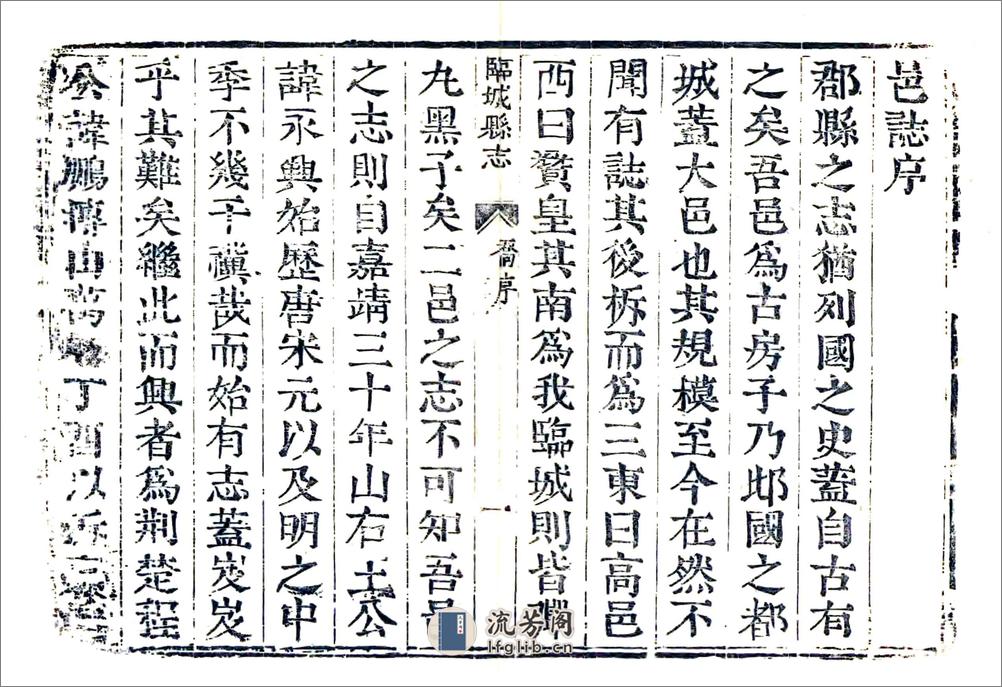 邑誌序
郡縣之志猶列國之史蓋自古有
之矣吾邑爲古房子乃邶國之都
城蓋大邑也其規模至今在然不
聞有誌其後柝而爲三東曰高邑
西曰贊皇其南爲我臨城則皆彈
臨城縣志
喬序
一
丸黑子矣二邑之志不可知吾邑
之志則自嘉靖三十年山右王公
諱永興始歷唐宋元以及明之中
季不幾千禩哉而始有志蓋岌岌
乎其難矣繼此而興者爲荆楚程
公諱鵬摶由萬丁酉以
流芳阁
lfglib.cn